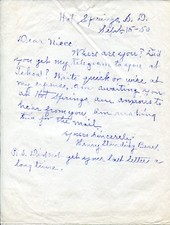 Hot Springs, S. D.
Sept. 15-50
Dear Niece
Where are you? Did
you get my telegram to you at
Tahoe? Write quick or wire at
my expense, I'm awaiting you
at Hot Springs am anxious to
hear from you. am making
this for the mail.
Yours sincerely
Henry Standing Bear
P.S. Did not get your last letters a
long time.